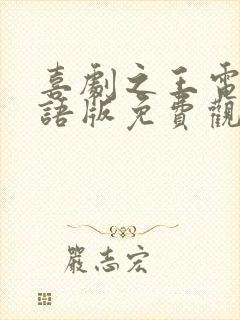 喜劇之王電
語版免費觀
嚴志宏